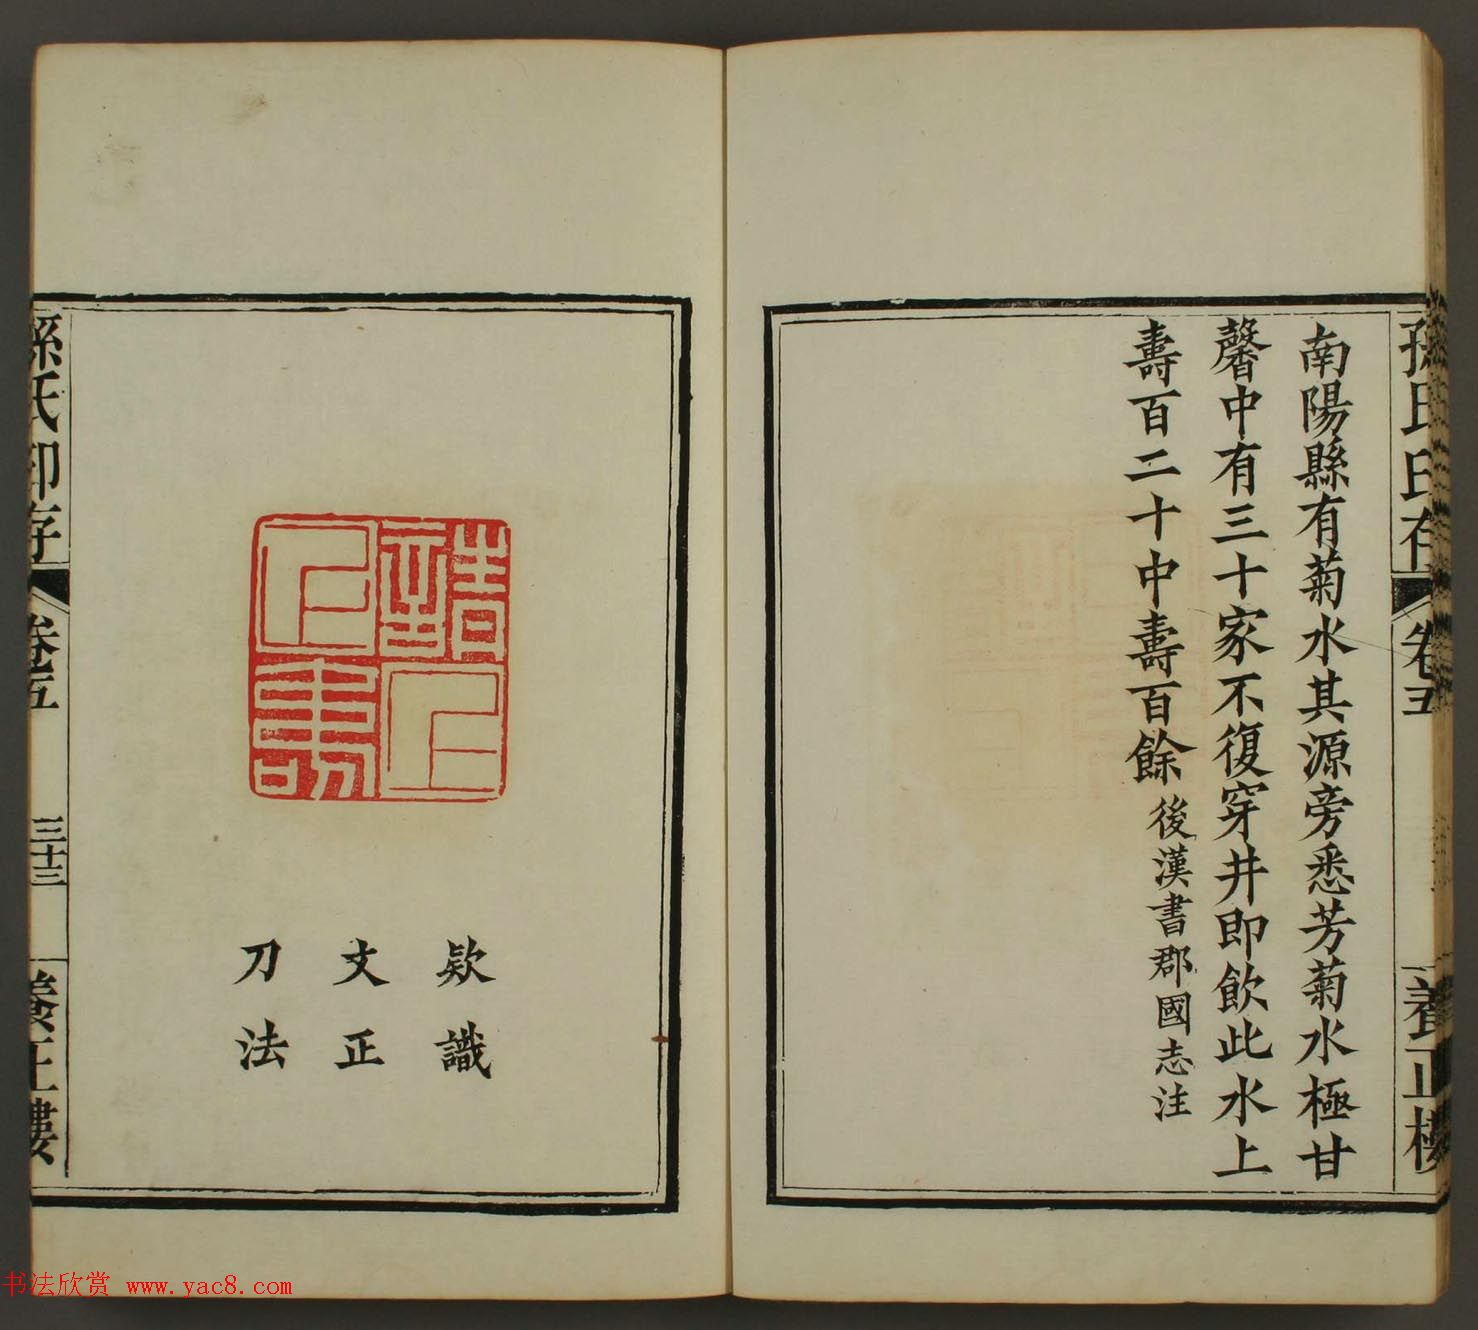 孫氏印存
卷五
養正樓
南陽縣有菊水其源旁悉芳菊水極甘
馨中有三十家不復穿井即飲此水上
壽百二十中壽百餘後漢書郡國志注
款識
文正
刀法
孫氏印存
卷五
三十三
養正樓
书法欣赏 www.yac8.com